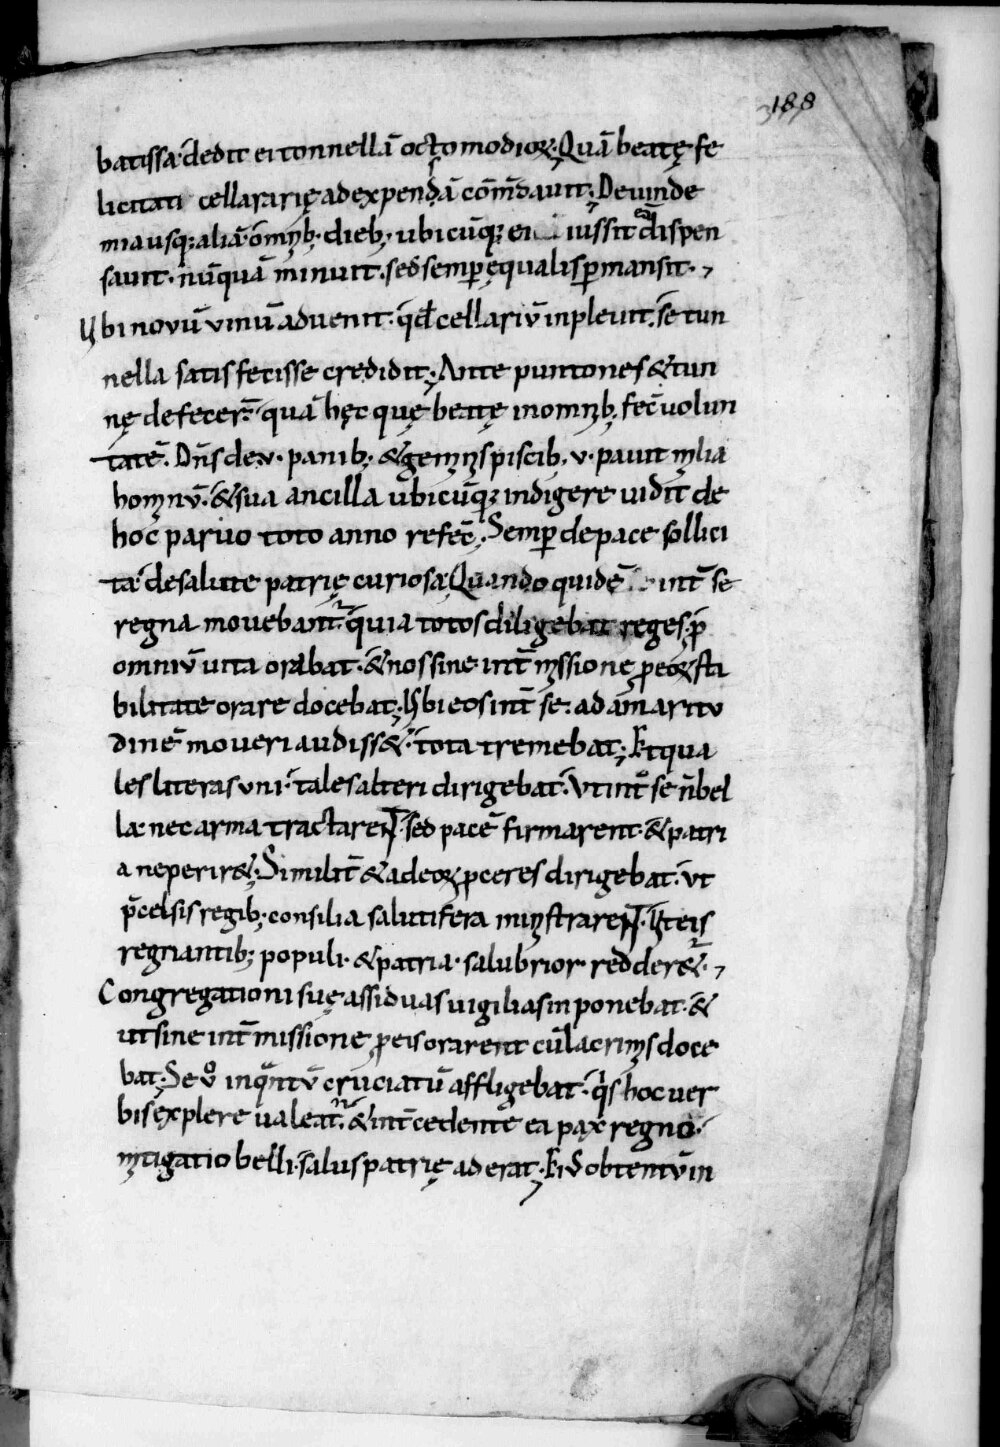 188
batissa dedit ei tonnellā octo modioꝝ. Quā beatę fe
licitati cellararię ad expensā cōm̄dauit; De uinde
mia usq; aliā om̄ib; dieb; ubicūq; ei iussit eā dispen
sauit. nūquā minuit. sed semꝑ ęqualis ꝑmansit.
Ubi novū vinū aduenit. qd̄ cellariū inpleuit. se tun
nella satisfecisse credidit; Ante puntones & tun
nę defecer̄. quā hęc quę beatę in omnib; fec̄ uolun
tatē. Dn̄s de .v. panib; & geminis piscib; .v. pauit milia
hominū. & sua ancilla ubicūq; indigere uidit de
hoc paruo toto anno refec̄; Semꝑ de pace sollici
ta de salute patrię curiosa; Quando quidē int̄ se
regna mouebant̄. quia totos diligebat reges. ꝓ
omniū uita orabat. & nos sine int̄missione ꝓ eoꝝ sta
bilitate orare docebat; Ubi eos int̄ se ad amaritu
dinē moueri audiss&. tota tremebat; Et qua
les literas uni. tales alteri dirigebat. Ut int̄ se n̄ bel
la nec arma tractarent. sed pacē firmarent. & patri
a ne perir&; Similit̄ & ad eoꝝ ꝓceres dirigebat. ut
p̄celsis regib; consilia salutifera ministrarent. ut eis
regnantib; populi. & patria salubrior redder&.
Congregationi suę assiduas uigilias inponebat. &
ut sine int̄missione ꝓ eis orarent cū lacrimis doce
bat; Se uͦ inqͣntū cruciatū affligebat. qͥs hoc uer
bis explere ualeat. & int̄cedente ea pax regnoꝝ
mitigatio belli. salus patrię aderat;